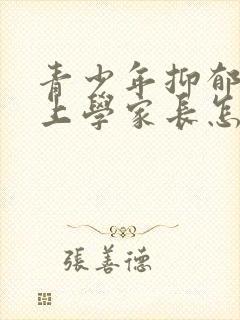 青少年抑郁
上學家長怎
張善德